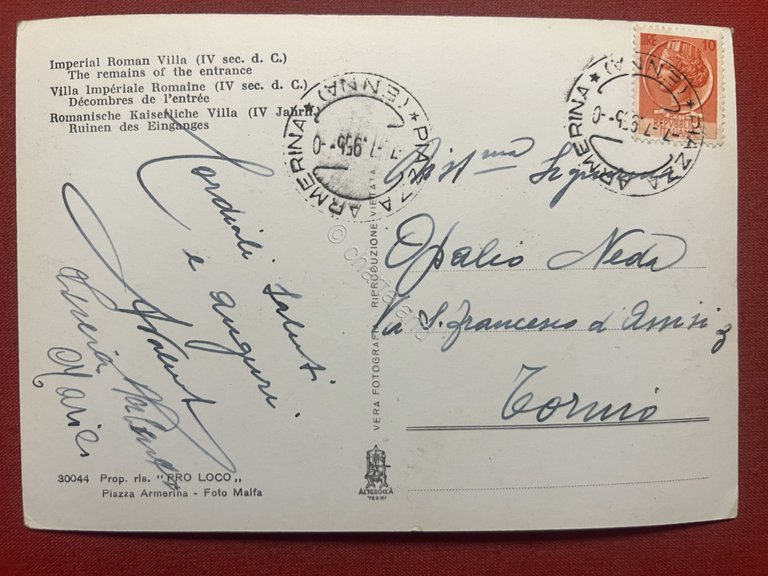 Imperial Roman Villa (IV sec. d. C.)
The remains of the entrance
Villa Impériale Romaine (IV sec. d. C.)
Décombres de l'entrée
Romanische Kaiserliche Villa (IV Jahrh.)
Ruinen des Einganges
LIRE 10
PIAZZA ARMERINA
(ENNA)
PIAZZA ARMERINA
(ENNA)
Cordiali saluti
e auguri.
Gent.ma Signorina
Opalio Neda
Via S. Francesco d'Assisi 3
Torino
© cfragalario
VERA FOTOGRAFIA RIPRODUZIONE VIETATA
30044 Prop. ris. "PRO LOCO"
Piazza Armerina - Foto Malfa
ALTEROCCA
TERNI